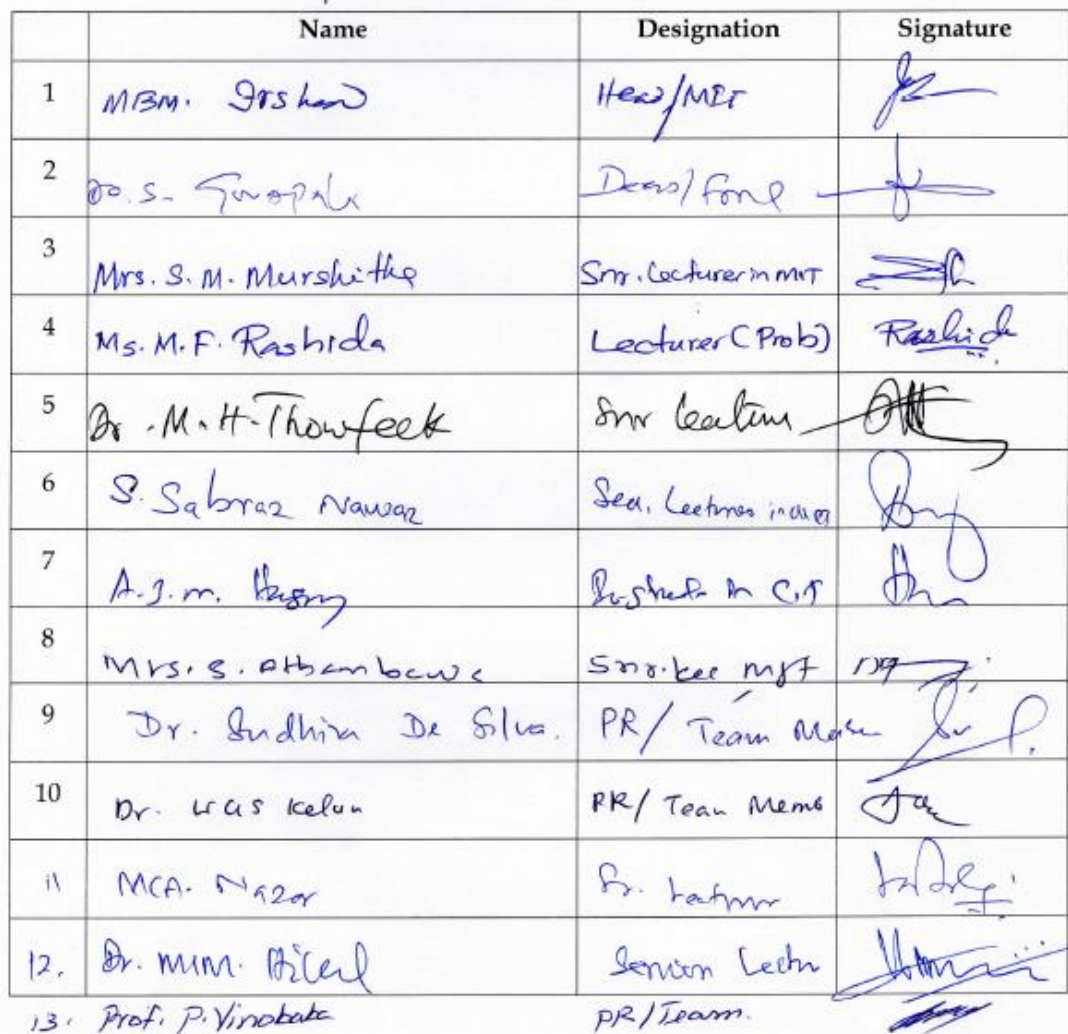 Name Designation Signature
1 MBM. Irshad Head/MIT
2 Dr. S. Gunapalan Dean/FMC
3 Mrs. S. M. Murshitha Snr. Lecturer in MIT
4 Ms. M. F. Rashida Lecturer (Prob) Rashida
5 Dr. M. H. Thowfeek Snr Lecturer
6 S. Sabraz Nawaz Sen. Lecturer in
7 A. J. m. in C.T
8 Mrs. S. Athambawa Snr. Lec MIT
9 Dr. Sudhira De Silva. PR/ Team Memb
10 Dr. Kelum PR/ Team Memb
11 MCA. Nazar Sr. Lecturer
12. Dr. MIM. Hilal Senior Lectu
13. Prof. P. Vinobaba PR/Team.